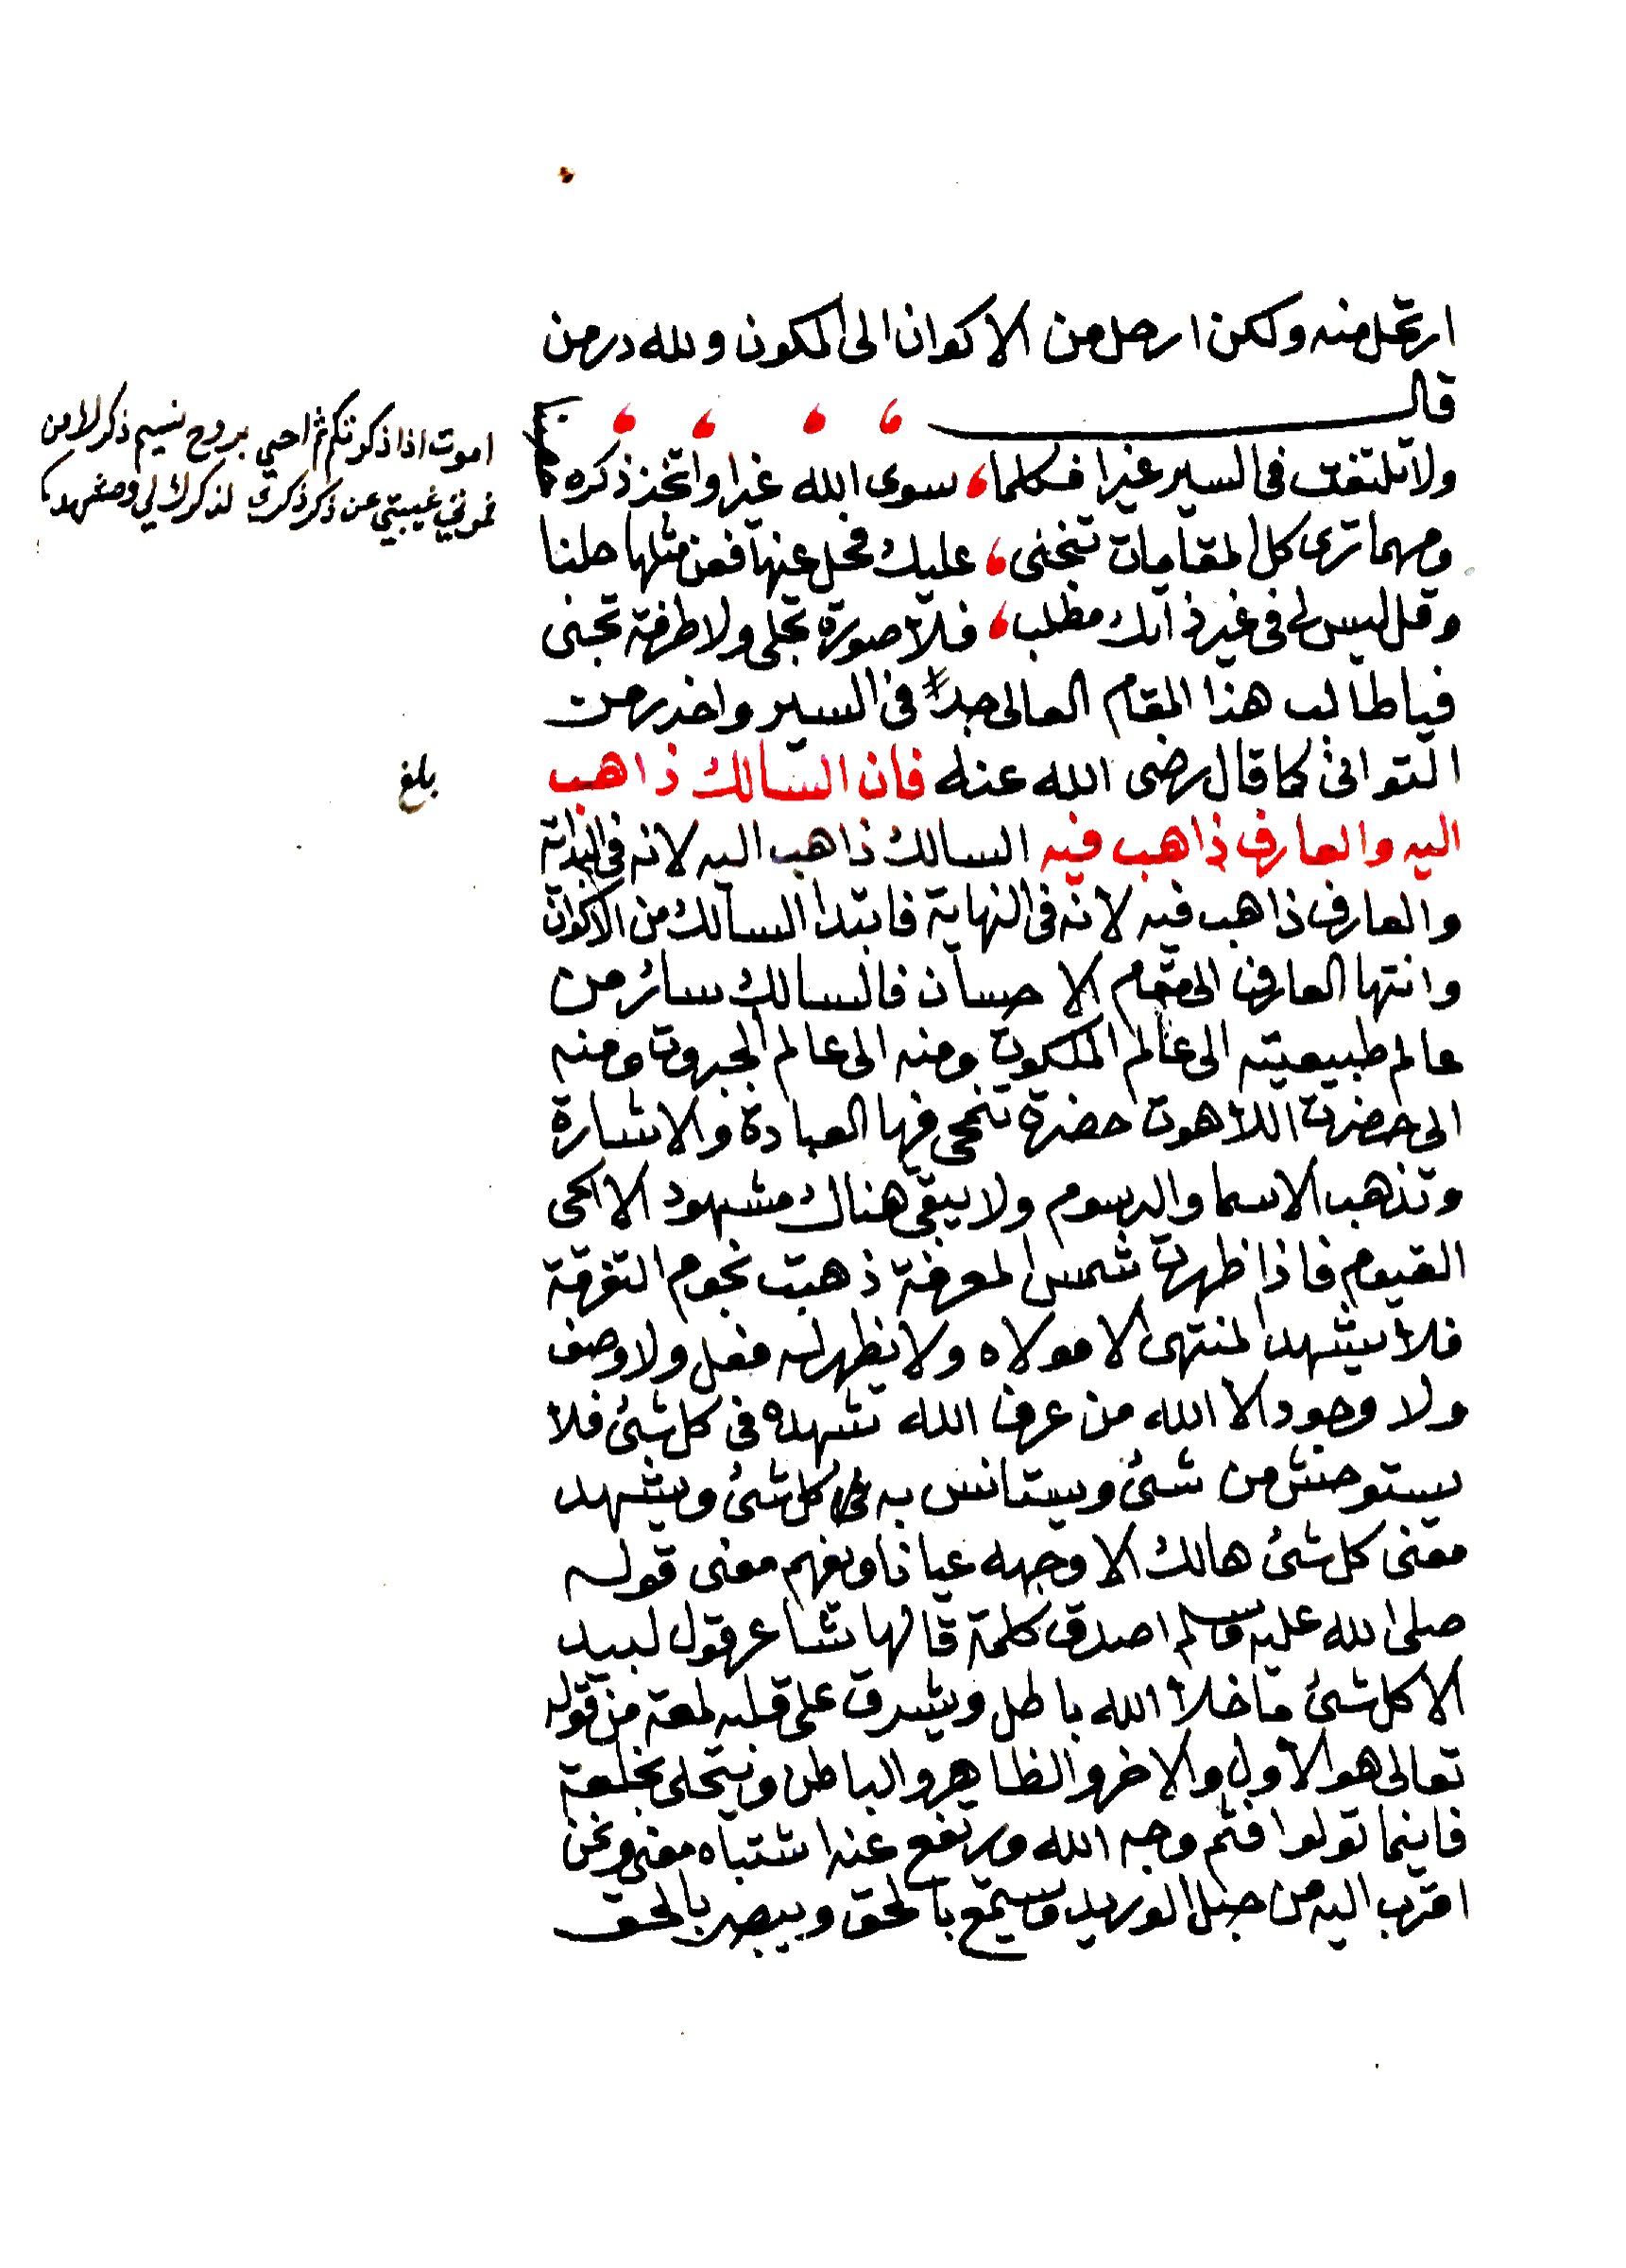 ارتحل منه ولكن ارحل من الاكوان الى المكون ولله در من
قال
ولا تلتفت فى السير غيرا فكلما، سوى الله غيرا واتخذ ذكره
ومهما ترى كل المقامات تنجنى، عليك فحل عنها فعن مثلها حلنا
وقل ليس لى فى غير ذاتك مطلب، فلا صورة تجلى ولا طرفة تجنى
فيا طالب هذا المقام العالى جدّ فى السير واحذر من
التوانى كما قال رضى الله عنه فان السالك ذاهب
اليه والعارف ذاهب فيه السالك ذاهب اليه لانه فى البداية
والعارف ذاهب فيه لانه فى النهاية فابتدا السالك من الاكوان
وانتها العارف الى مقام الاحسان فالسالك سائر من
عالم طبيعيته الى عالم الملكوت ومنه الى عالم الجبروت ومنه
الى حضرت اللاهوت حضرة تنمحى فيها العبادة والاشارة
وتذهب الاسما والرسوم ولا يبقى هناك مشهود الا الحى
القيوم فاذا ظهرت شمس المعرفة ذهبت نجوم التفرقة
فلا يشهد المنتهى الا مولاه ولا يظهر له فعل ولا وصف
ولا وجود الا الله من عرف الله تشهده فى كل شئ فلا
يستوحش من شئ ويستانس به كل شئ ويشهد
معنى كل شئ هالك الا وجهه عيانا ويفهم معنى قوله
صلى الله عليه وسلم اصدق كلمة قالها شاعر قول لبيد
الا كل شئ ما خلا الله باطل ويشرق على قلبه لمعة من قوله
تعالى هو الاول والاخر والظاهر والباطن ويتحلى بخلعة
فاينما تولوا فثم وجه الله ويرتفع عنه اشتباه معنى ونحن
اقرب اليه من حبل الوريد ويسمع بالحق ويبصر بالحق
اموت اذا ذكرتكم ثم احيى بروح نسيم ذكر لا من
غيبتي عن ذكر ذكرك لذكرك لي
بلغ